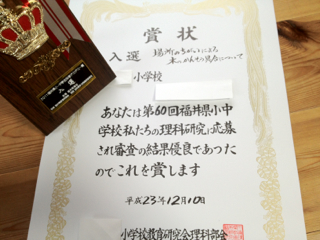 賞状
入選 場所のちがいによる
小学校
あなたは第60回福井県小中
学校私たちの理科研究に応募
され審査の結果優良であった
のでこれを賞します
平成23年12月10日
小学校教育研究会理科部会
入選